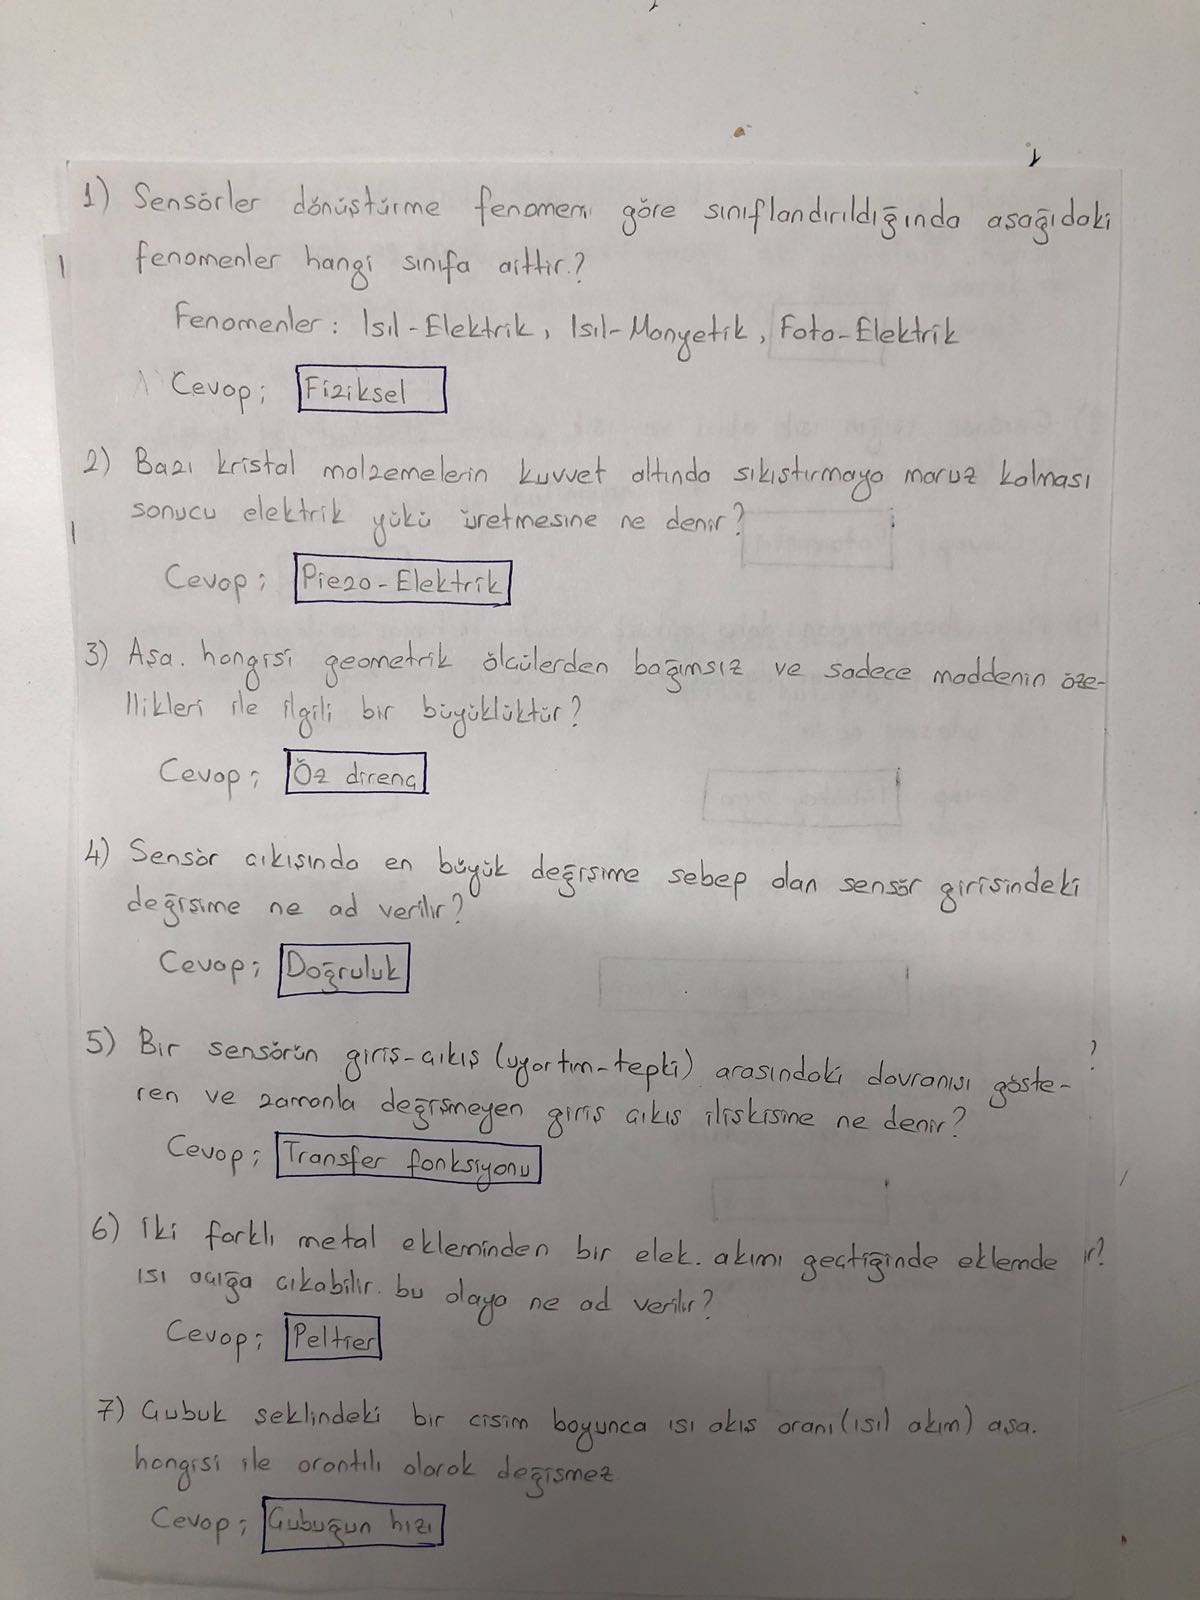 1) Sensörler dönüştürme fenomeni göre sınıflandırıldığında aşağıdaki
fenomenler hangi sınıfa aittir.?
Fenomenler : Isıl-Elektrik, Isıl-Manyetik, Foto-Elektrik
Cevap; Fiziksel
2) Bazı kristal malzemelerin kuvvet altında sıkıştırmaya maruz kalması
sonucu elektrik yükü üretmesine ne denir?
Cevap; Piezo-Elektrik
3) Aşa. hangisi geometrik ölçülerden bağımsız ve sadece maddenin öze-
llikleri ile ilgili bir büyüklüktür?
Cevap; Öz direnç
4) Sensör çıkışında en büyük değişime sebep olan sensör girişindeki
değişime ne ad verilir?
Cevap; Doğruluk
5) Bir sensörün giriş-çıkış (uyartım-tepki) arasındaki davranışı göste-
ren ve zamanla değişmeyen giriş çıkış ilişkisine ne denir?
Cevap; Transfer fonksiyonu
6) İki farklı metal ekleminden bir elek. akımı geçtiğinde eklemde
ısı açığa çıkabilir. bu olaya ne ad verilir?
Cevap; Peltier
7) Çubuk şeklindeki bir cisim boyunca ısı akış oranı (ısıl akım) aşa.
hangisi ile orantılı olarak değişmez
Cevap; Çubuğun hızı